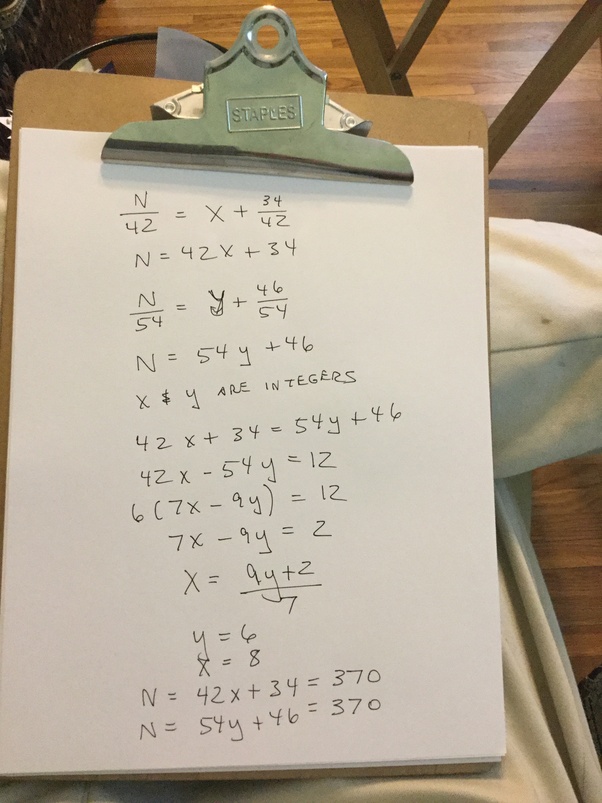 STAPLES
N/42 = X + 34/42
N = 42X + 34
N/54 = y + 46/54
N = 54y + 46
X & y ARE INTEGERS
42X + 34 = 54y + 46
42X - 54y = 12
6(7X - 9y) = 12
7X - 9y = 2
X = 9y+2/7
y = 6
X = 8
N = 42X + 34 = 370
N = 54y + 46 = 370